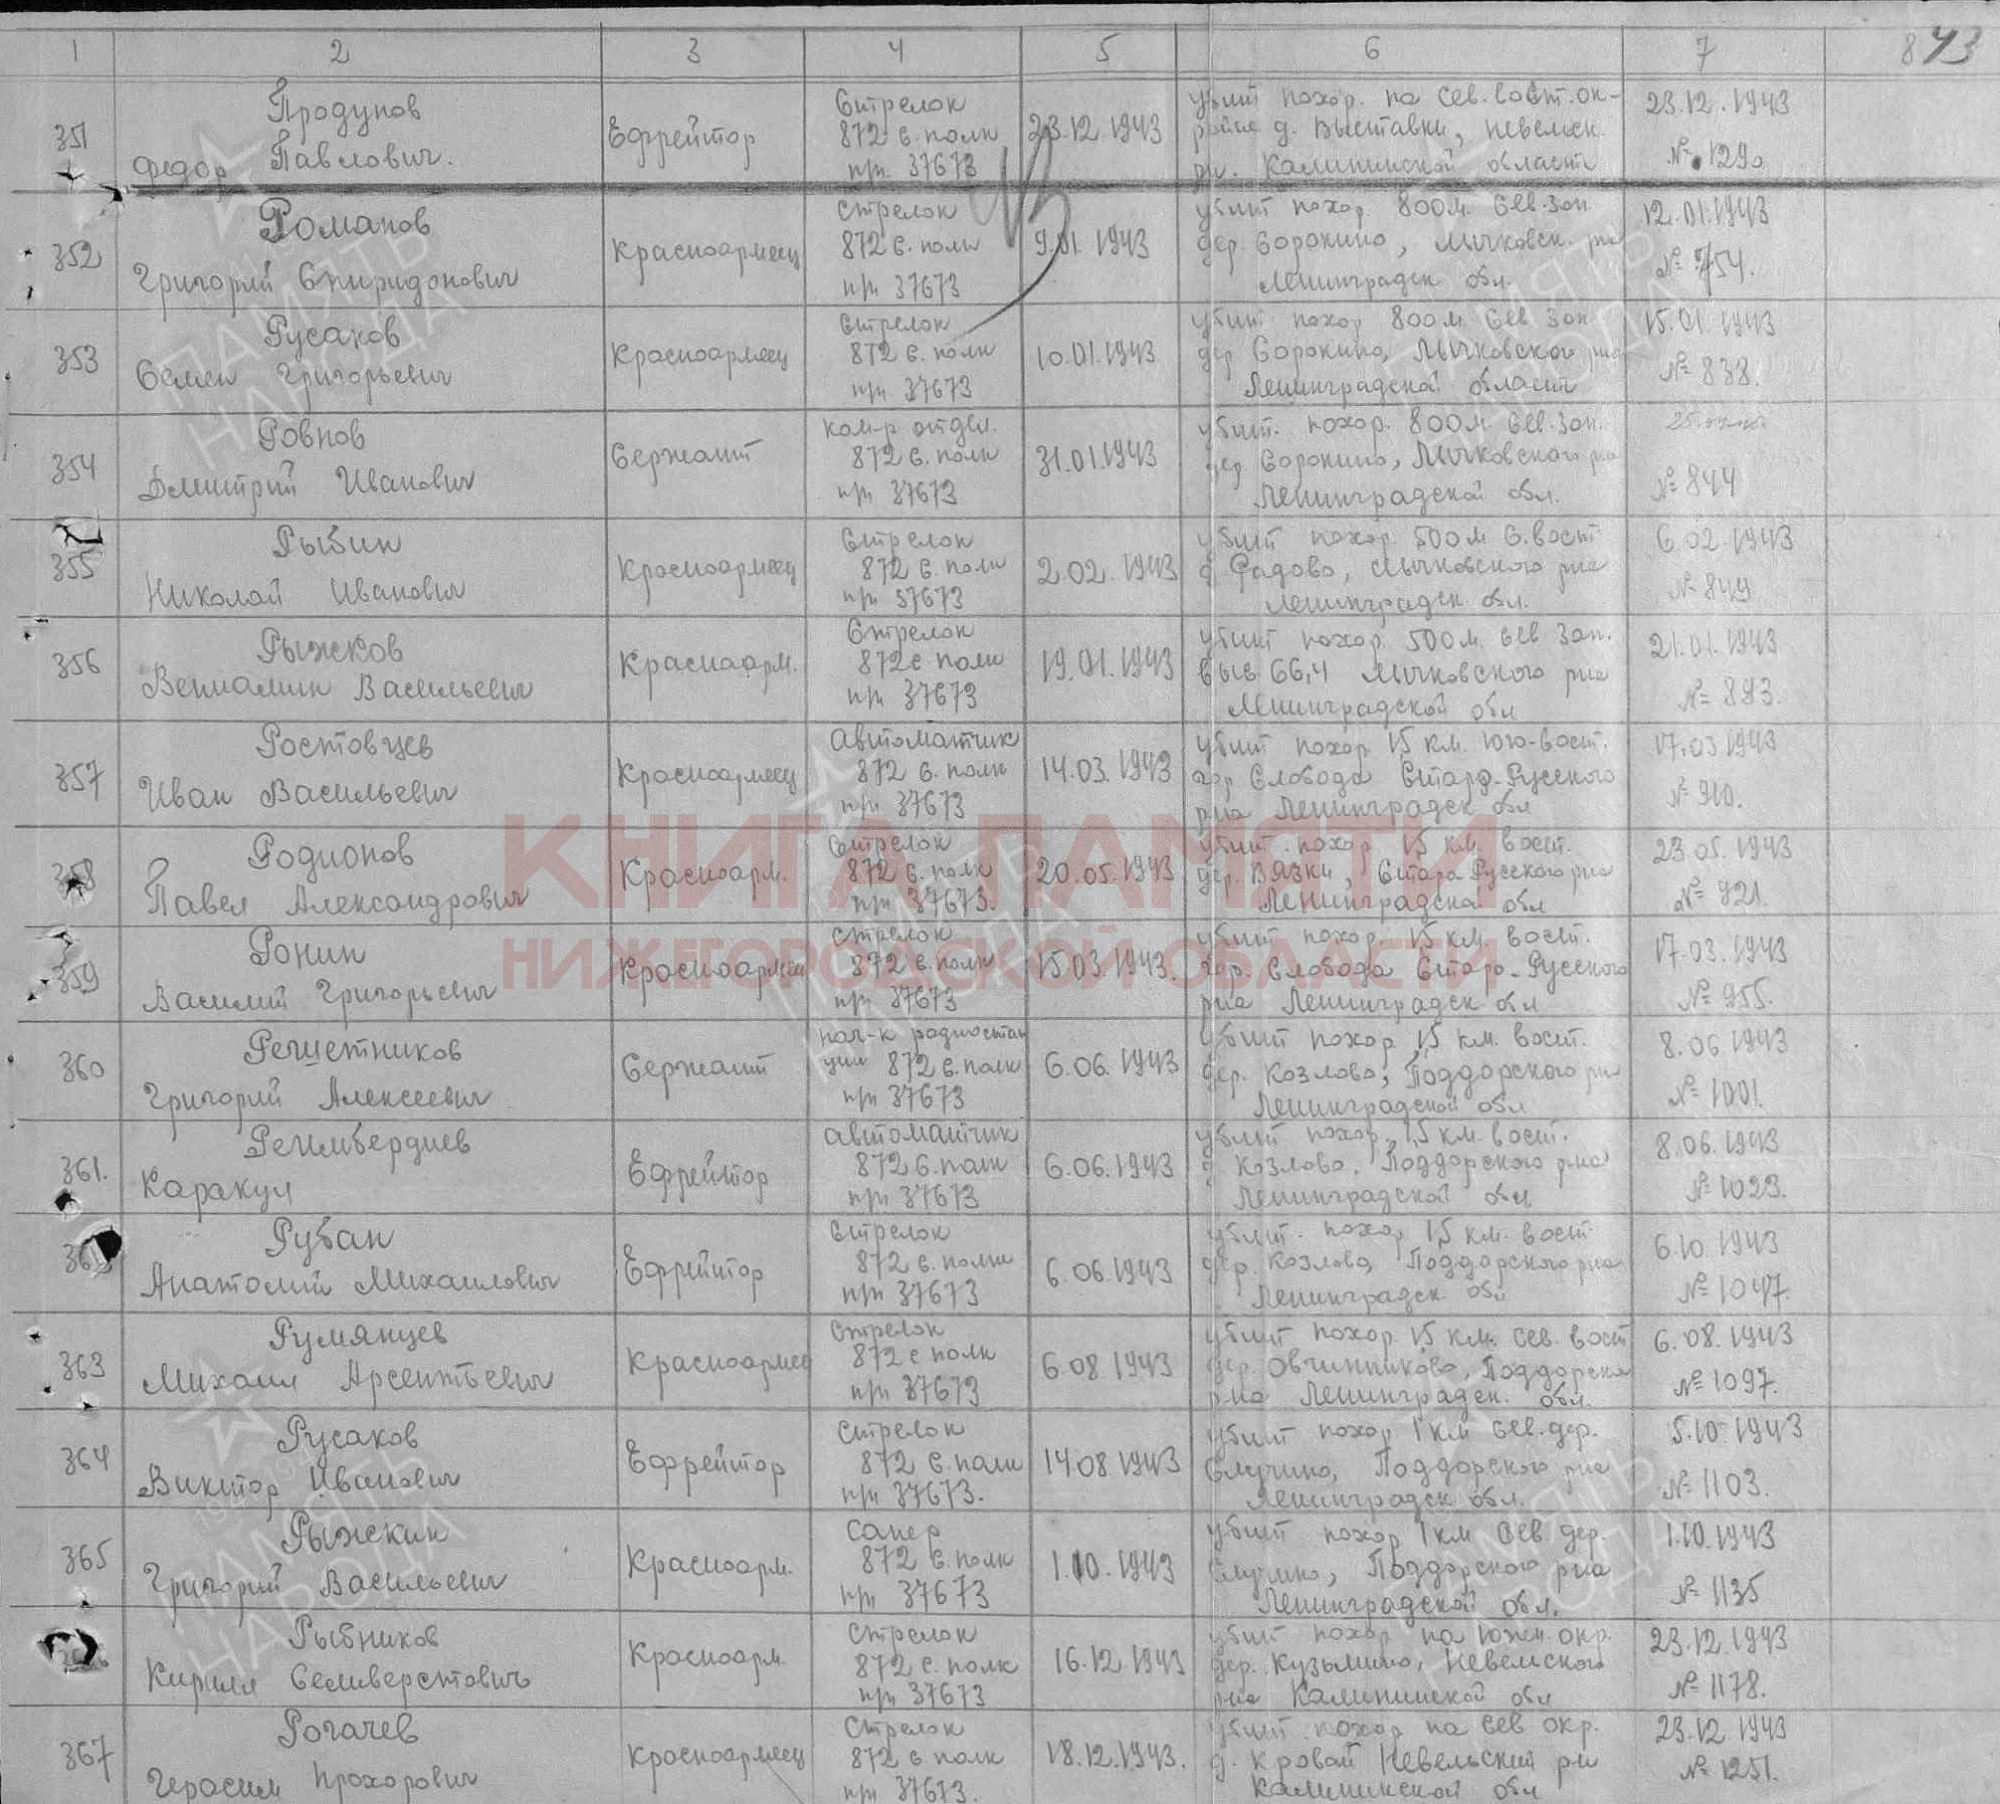 1 2 3 4 5 6 7 8 43
351 Продунов Федор Павлович. Ефрейтор Стрелок 872 с. полк п/п 37673 23.12.1943 убит похор. на сев. вост. ок- раине д. Выставки, Невельск. рн. Калининской области 23.12.1943 № 1290
352 Романов Григорий Спиридонович Красноармеец Стрелок 872 с. полк п/п 37673 9.01.1943 убит похор 800 м. сев. зап дер. Сорокино, Лычковск. р-на Ленинградск обл. 12.01.1943 № 754.
353 Русаков Семен Григорьевич Красноармеец Стрелок 872 с. полк п/п 37673 10.01.1943 убит похор 800 м сев зап дер Сорокино, Лычковского р-на Ленинградской области 15.01.1943 № 838.
354 Ровнов Дмитрий Иванович Сержант ком-р отдел. 872 с. полк п/п 37673 31.01.1943 убит. похор. 800 м сев. зап. дер Сорокино, Лычковского р-на Ленинградской обл. № 844
355 Рыбин Николай Иванович Красноармеец Стрелок 872 с. полк п/п 37673 2.02.1943 убит похор. 500 м с. вост д Радово, Лычковского р-на Ленинградск. обл. 6.02.1943 № 849
356 Рыжков Вениамин Васильевич Красноарм. Стрелок 872 с полк п/п 37673 19.01.1943 убит похор. 500 м. сев зап. выс 66,4 Лычковского р-на Ленинградской обл 21.01.1943 № 893.
357 Ростовцев Иван Васильевич Красноармеец Автоматчик 872 с. полк п/п 37673 14.03.1943 убит похор 15 км. юго-вост. гор Слобода Старо-Русского р-на Ленинградск обл 17.03.1943 № 910.
358 Родионов Павел Александрович Красноарм. Стрелок 872 с. полк п/п 37673. 20.05.1943 убит. похор 15 км. вост. дер. Вязки, Старо Русского р-на Ленинградской обл 23.05.1943 № 921.
КНИГА ПАМЯТИ
НИЖЕГОРОДСКОЙ ОБЛАСТИ
359 Ронин Василий Григорьевич Красноармеец Стрелок 872 с. полк п/п 37673 15.03.1943. убит похор 15 км. вост. гор. Слобода Старо-Русского р-на Ленинградск обл 17.03.1943 № 955.
360 Решетников Григорий Алексеевич Сержант нач-к радиостан ции 872 с. полк п/п 37673 6.06.1943 Убит похор 15 км. вост. дер. Козлово, Поддорского р-на Ленинградской обл 8.06.1943 № 1001.
361. Регимбердиев Каракул Ефрейтор автоматчик 872 с. полк п/п 37673 6.06.1943 убит похор 1,5 км. вост. д Козлово, Поддорского р-на Ленинградской обл 8.06.1943 № 1023.
Рубан Анатолий Михаилович Ефрейтор Стрелок 872 с. полк п/п 37673 6.06.1943 убит. похор 15 км. вост дер. Козлово, Поддорского р-на Ленинградск обл 6.10.1943 № 1047.
363 Румянцев Михаил Арсентьевич Красноармеец Стрелок 872 с полк п/п 37673 6.08.1943 убит похор 15 км. сев. вост дер. Овчинниково, Поддорск р-на Ленинградск. обл. 6.08.1943 № 1097.
364 Русаков Виктор Иванович Ефрейтор Стрелок 872 с. полк п/п 37673. 14.08.1943 убит похор 1 км сев. дер. Слугино, Поддорского р-на Ленинградск обл. 5.10.1943 № 1103.
365 Рыжекин Григорий Васильевич Красноарм. Сапер 872 с. полк п/п 37673 1.10.1943 убит похор 1 км сев. дер. Слугино, Поддорского р-на Ленинградской обл. 1.10.1943 № 1135
Рыбников Кирилл Селиверстович Красноарм. Стрелок 872 с. полк п/п 37673 16.12.1943 убит похор на южн. окр. дер. Кузьмино, Невельского р-на Калининской обл 23.12.1943 № 1178.
367 Рогачев Герасим Прохорович Красноармеец Стрелок 872 с полк п/п 37673. 18.12.1943. убит похор на сев окр. д. Кровай Невельский рн Калининской обл 23.12.1943 № 1251.